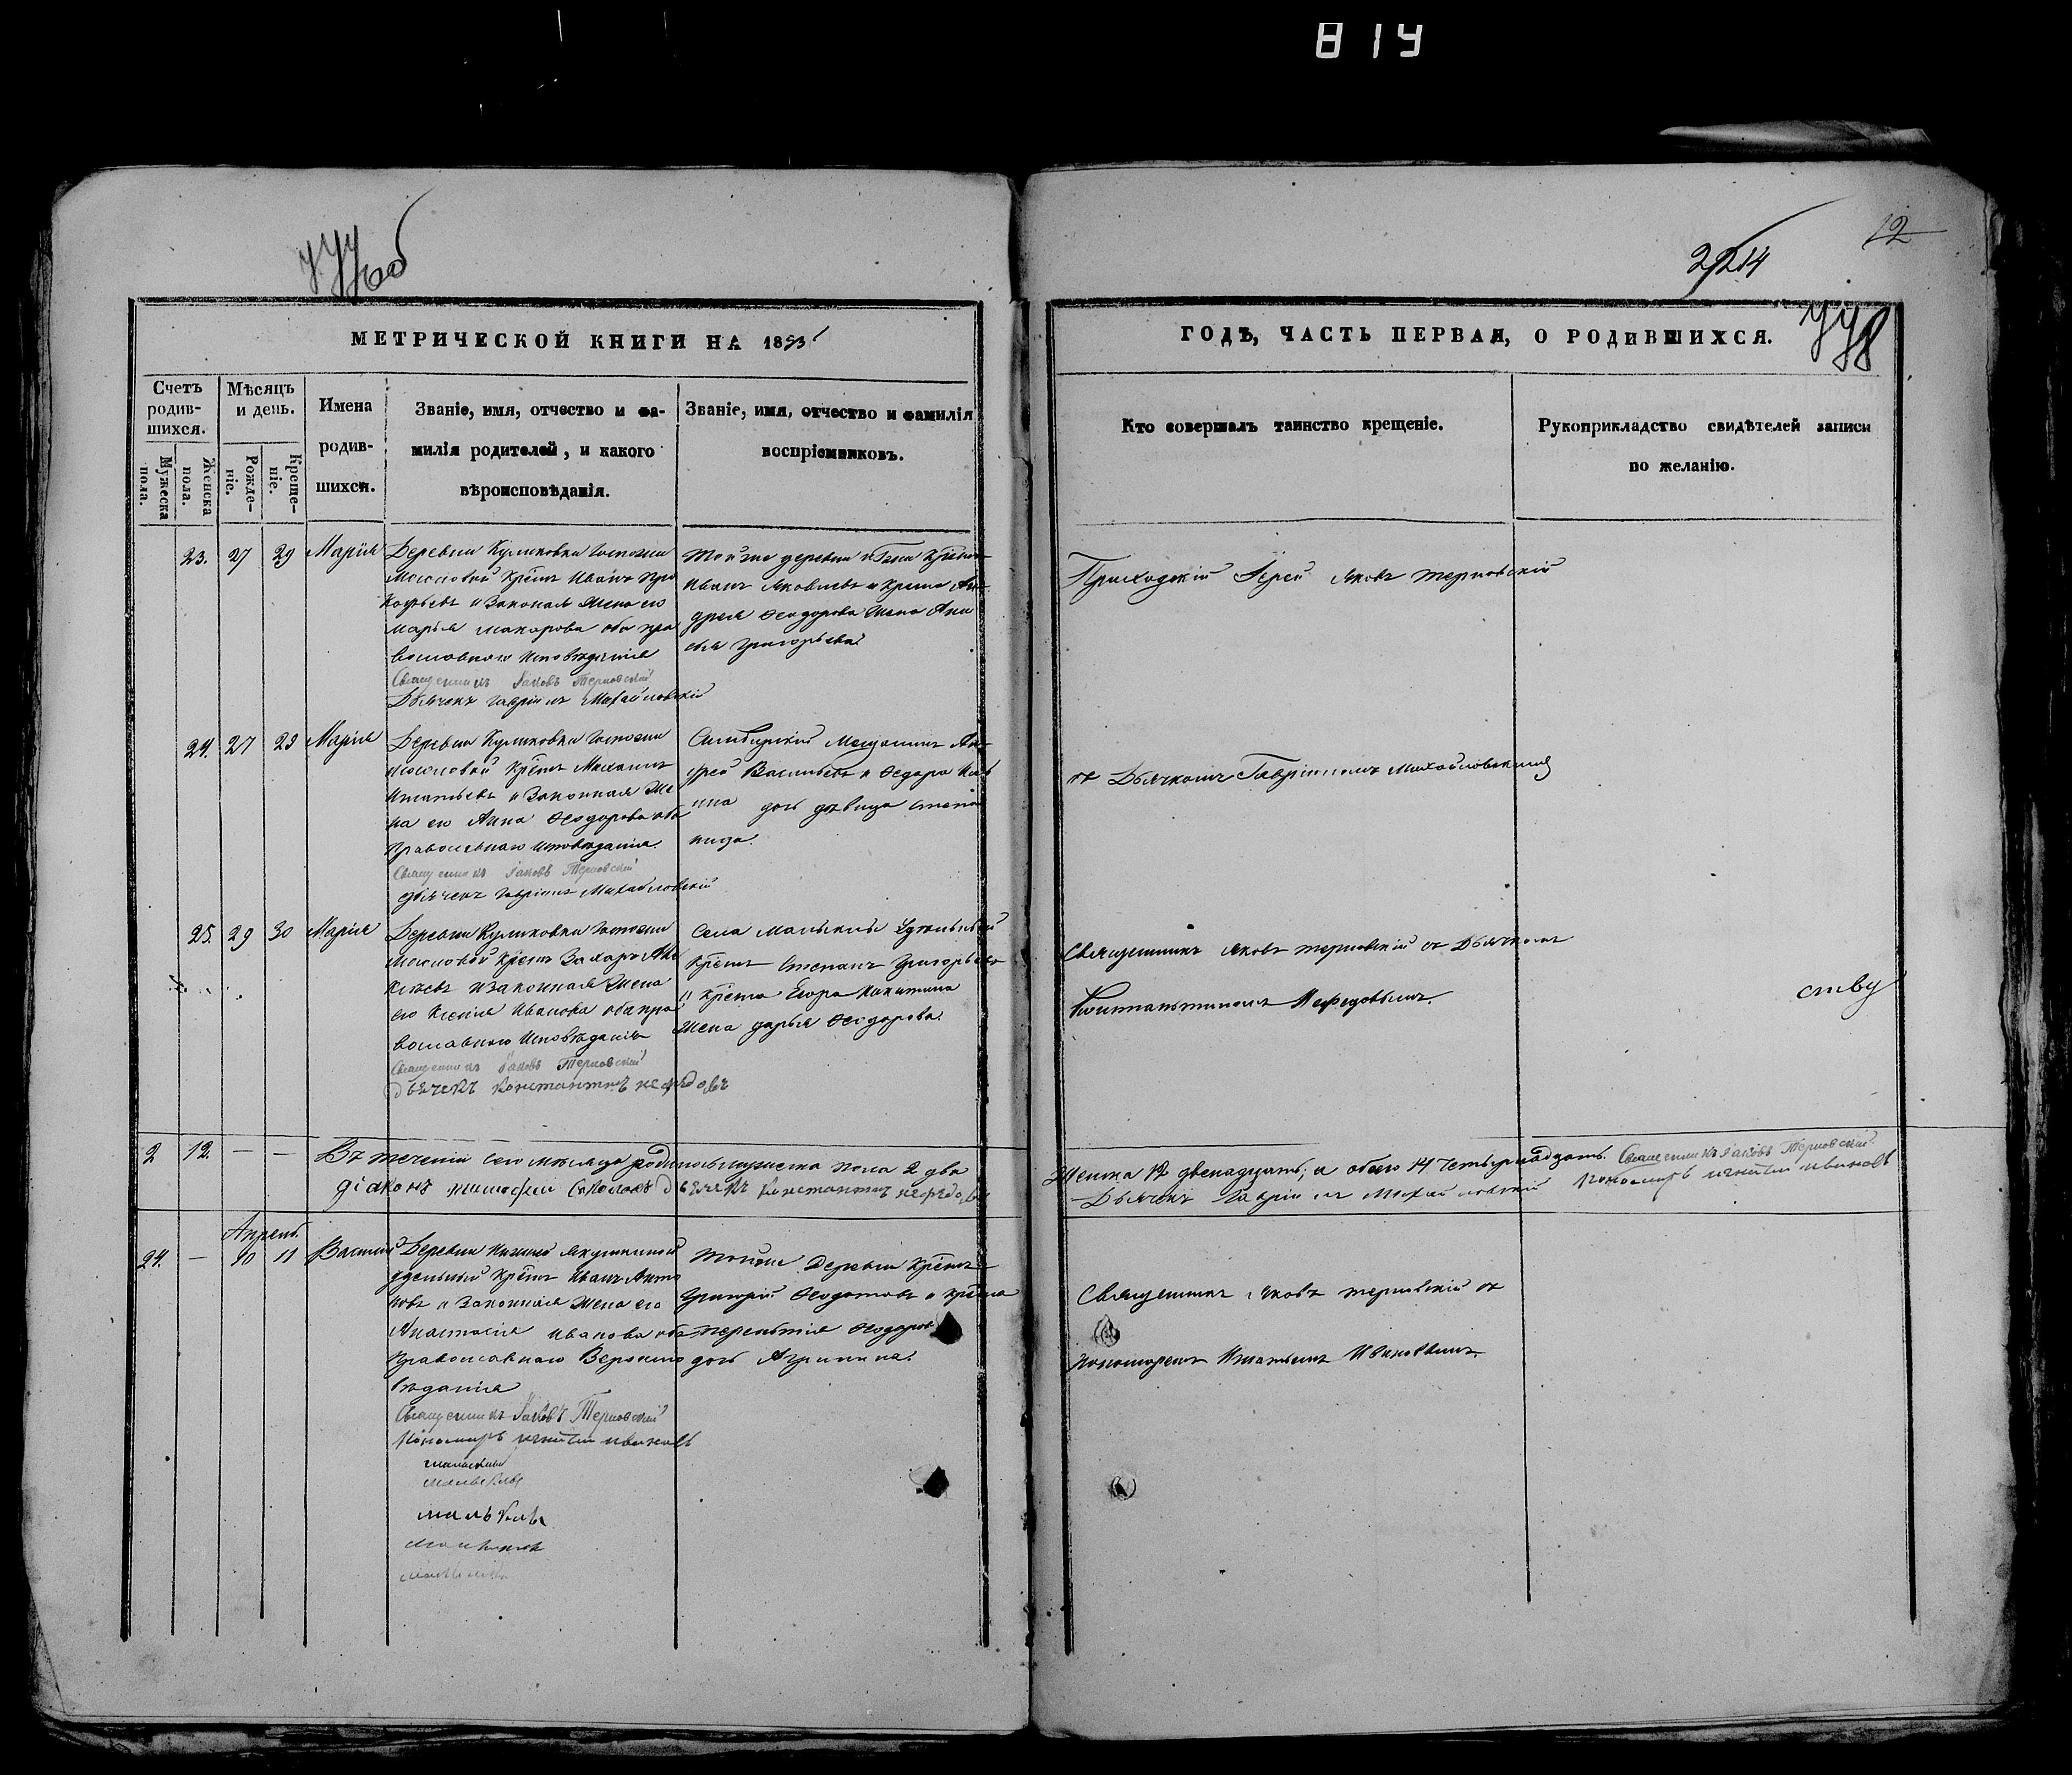 814
12
2214
МЕТРИЧЕСКОЙ КНИГИ НА 1853
ГОДЪ, ЧАСТЬ ПЕРВАЯ, О РОДИВШИХСЯ.
Счетъ родив-шихся.
Мужеска пола.
Женска пола.
Мѣсяцъ и день.
Рожде-ніе.
Креще-ніе.
Имена родив-шихся.
Званіе, имя, отчество и фа-
милія родителей, и какого
вѣроисповѣданія.
Званіе, имя, отчество и фамилія
воспріемниковъ.
Кто совершалъ таинство крещеніе.
Рукоприкладство свидѣтелей записи
по желанію.
23. 27 29 Марія
Деревни Куликовки Госпожи
Крѣст Иванъ Про
кофьевъ и Законая Жена его
Марья Макарова оба пра
вославнаго Исповѣданія
Священникъ Іаковъ Терновскій
Дьячекъ Гавріилъ Михайловскій
той же деревни
Иванъ Яковлевъ и Ан
дрея Ѳеодорова Жена
Григорьева
Приходскій Іерей Яковъ Терновскій
24. 27 29 Марія
Деревни Куликовки Госпожи
Крѣст Михаилъ
Игнатьевъ и Законная Же
на его Анна Ѳеодорова оба
Православнаго Исповѣданія
Священникъ Іаковъ Терновскій
дьячекъ Гавріилъ Михайловскій
Симбирскій Мещанинъ Ан
дрей Васильевъ и Ѳедора
дочь дѣвица Степа
нида.
съ Дьячкомъ Гавріиломъ Михайловскимъ
25. 29 30 Марія
Деревни Куликовки Госпожи
Крѣст Захаръ Але
ксѣевъ и Законная Жена
его Ксенія Иванова оба пра
вославнаго Исповѣданія
Священникъ Іаковъ Терновскій
дьячекъ Константинъ нефедовъ
Села Удѣльный
Крѣст Степанъ Григорьевъ
и Крѣст Егора Никитина
Жена Дарья Ѳеодорова.
Священникъ Яковъ Терновскій съ Дьячкомъ
Константиномъ Нефедовымъ.
ству
2 12. — —
Въ теченіи сего мѣсяца родилось мужеска пола 2 два
діаконъ Соколовъ дьячекъ Константинъ нефедовъ
Женска 12 двенадцать; а обоего 14 Четырнадцать. Священникъ Іаковъ Терновскій
Дьячекъ Гавріилъ Михайловскій Пономарь игнатій ивановъ
Апрель
24. — 10 11 Василій
Деревни Нижней Якушкиной
удельный Крѣст Иванъ Анто
новъ и Законная Жена его
Анастасія Иванова оба
Православнаго Вероиспо
вѣданія
Священникъ Іаковъ Терновскій
Пономарь игнатій ивановъ
той же Деревни Крѣст
Григорій Ѳедотовъ и
терентія Ѳеодоров
дочь Агрипина.
Священникъ Яковъ Терновскій съ
пономаремъ Игнатьемъ Ивановымъ.